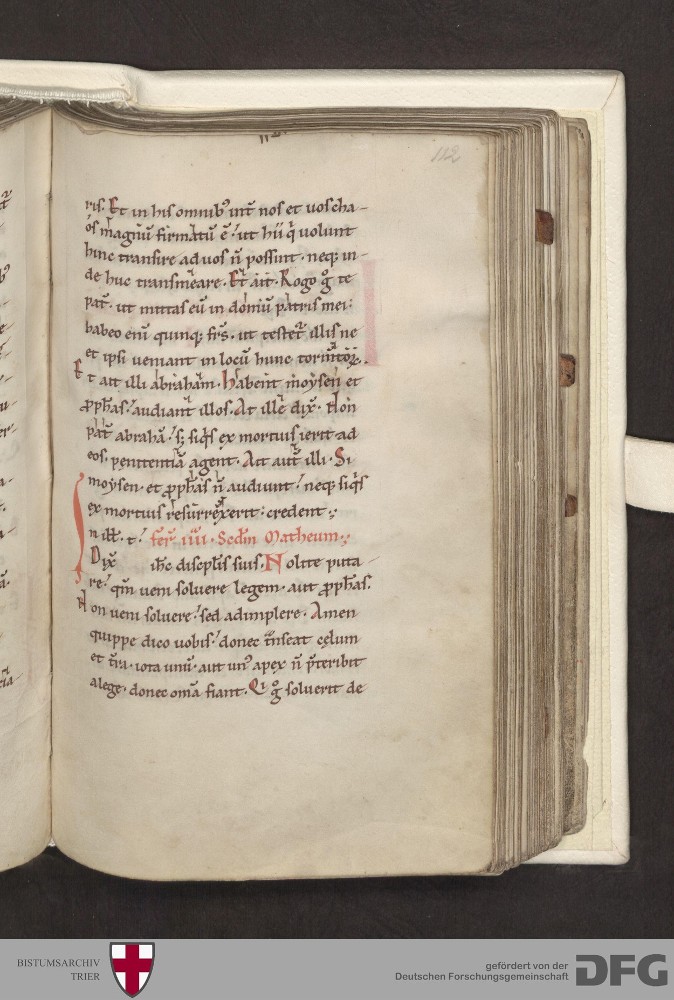 112
ris. Et in his omnib; int̅ nos et uos cha-
os magnu̅ firmatu̅ e̅. ut hii q̅ uolunt
hinc transire ad uos n̅ possint. neq; in-
de huc transmeare. Et ait. Rogo g̊ te
pat̅. ut mittas eu̅ in domu̅ patris mei:
habeo eni̅ quinq; fr̅s. ut testet᷑ illis ne
et ipsi ueniant in locu̅ hunc torm̅toꝝ.
Et ait illi abraham. Habent moysen et
ꝓph̅as. audiant illos. At ille dix̅. Non
pat̅ abraha̅. s; siq̅s ex mortuis ierit ad
eos. penitentia̅ agent. Ait aut̅ illi. Si
moysen. et ꝓph̅as n̅ audiunt. neq; siq̅s
ex mortuis resurrexerit: credent.
In ill̅. t̅. fer̅. iiii. Scd̅m Matheum.
Dix̅ ih̅c discipl̅is suis. Nolite puta-
re. qm̅ ueni soluere legem. aut ꝓph̅as.
Non ueni soluere. sed adimplere. Amen
quippe dico uobis. donec t̅nseat cęlum
et t̅ra. iota unu̅. aut un᷒ apex n̅ p̅teribit
alege. donec om̅a fiant. Qi g̊ soluerit de
BISTUMSARCHIV
TRIER
gefördert von der
Deutschen Forschungsgemeinschaft
DFG